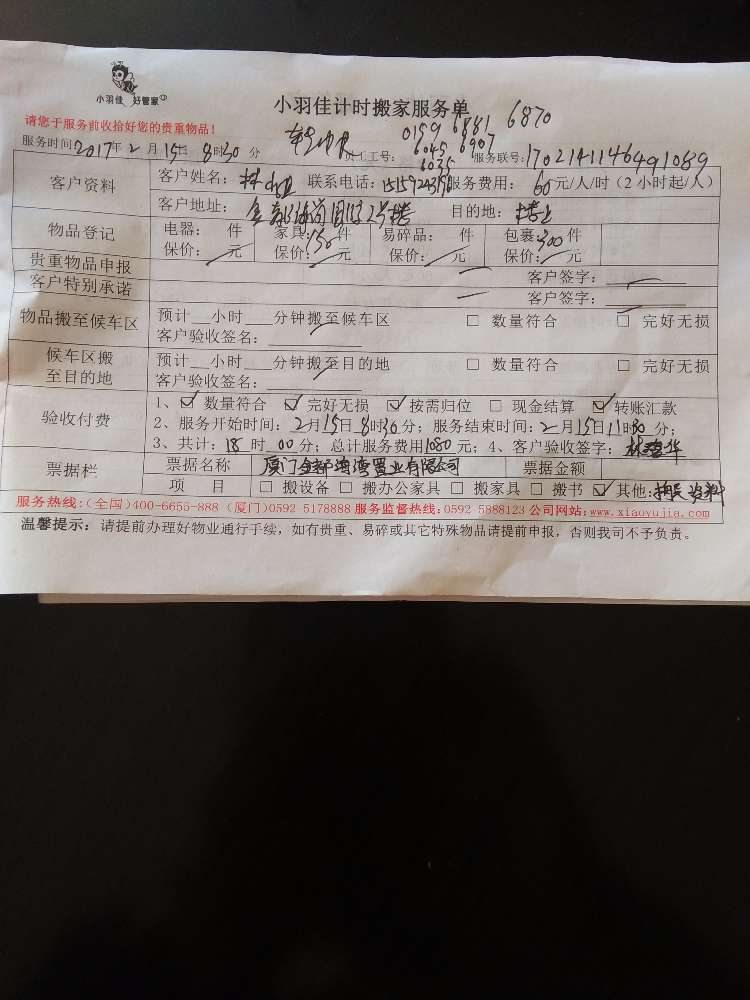 小羽佳 好管家
小羽佳计时搬家服务单
请您于服务前收拾好您的贵重物品!
0159 6881 6870
6045 6907
6035
服务时间2017年2月15日8时30分 员工工号: 服务联号:
客户资料 客户姓名:林小姐 联系电话: 服务费用:60元/人/时(2小时起/人)
客户地址: 目的地:楼上
物品登记 电器: 件 家具:150件 易碎品: 件 包裹:300件
保价: 元 保价: 元 保价: 元 保价: 元
贵重物品申报 客户签字:
客户特别承诺 客户签字:
物品搬至候车区 预计 小时 分钟搬至候车区 □ 数量符合 □ 完好无损
客户验收签名:
候车区搬至目的地 预计 小时 分钟搬至目的地 □ 数量符合 □ 完好无损
客户验收签名:
验收付费 1、☑ 数量符合 ☑ 完好无损 ☑ 按需归位 □ 现金结算 ☑ 转账汇款
2、服务开始时间:2月15日8时30分;服务结束时间:2月15日11时30分;
3、共计:18时00分;总计服务费用1080元;4、客户验收签字:
票据栏 票据名称 厦门金都海湾置业有限公司 票据金额
项 目 □ 搬设备 □ 搬办公家具 □ 搬家具 □ 搬书 ☑ 其他: 资料
服务热线:(全国)400-6655-888 (厦门)0592 5178888 服务监督热线:0592 5888123 公司网站:www.xiaoyujia.com
温馨提示:请提前办理好物业通行手续,如有贵重、易碎或其它特殊物品请提前申报,否则我司不予负责。